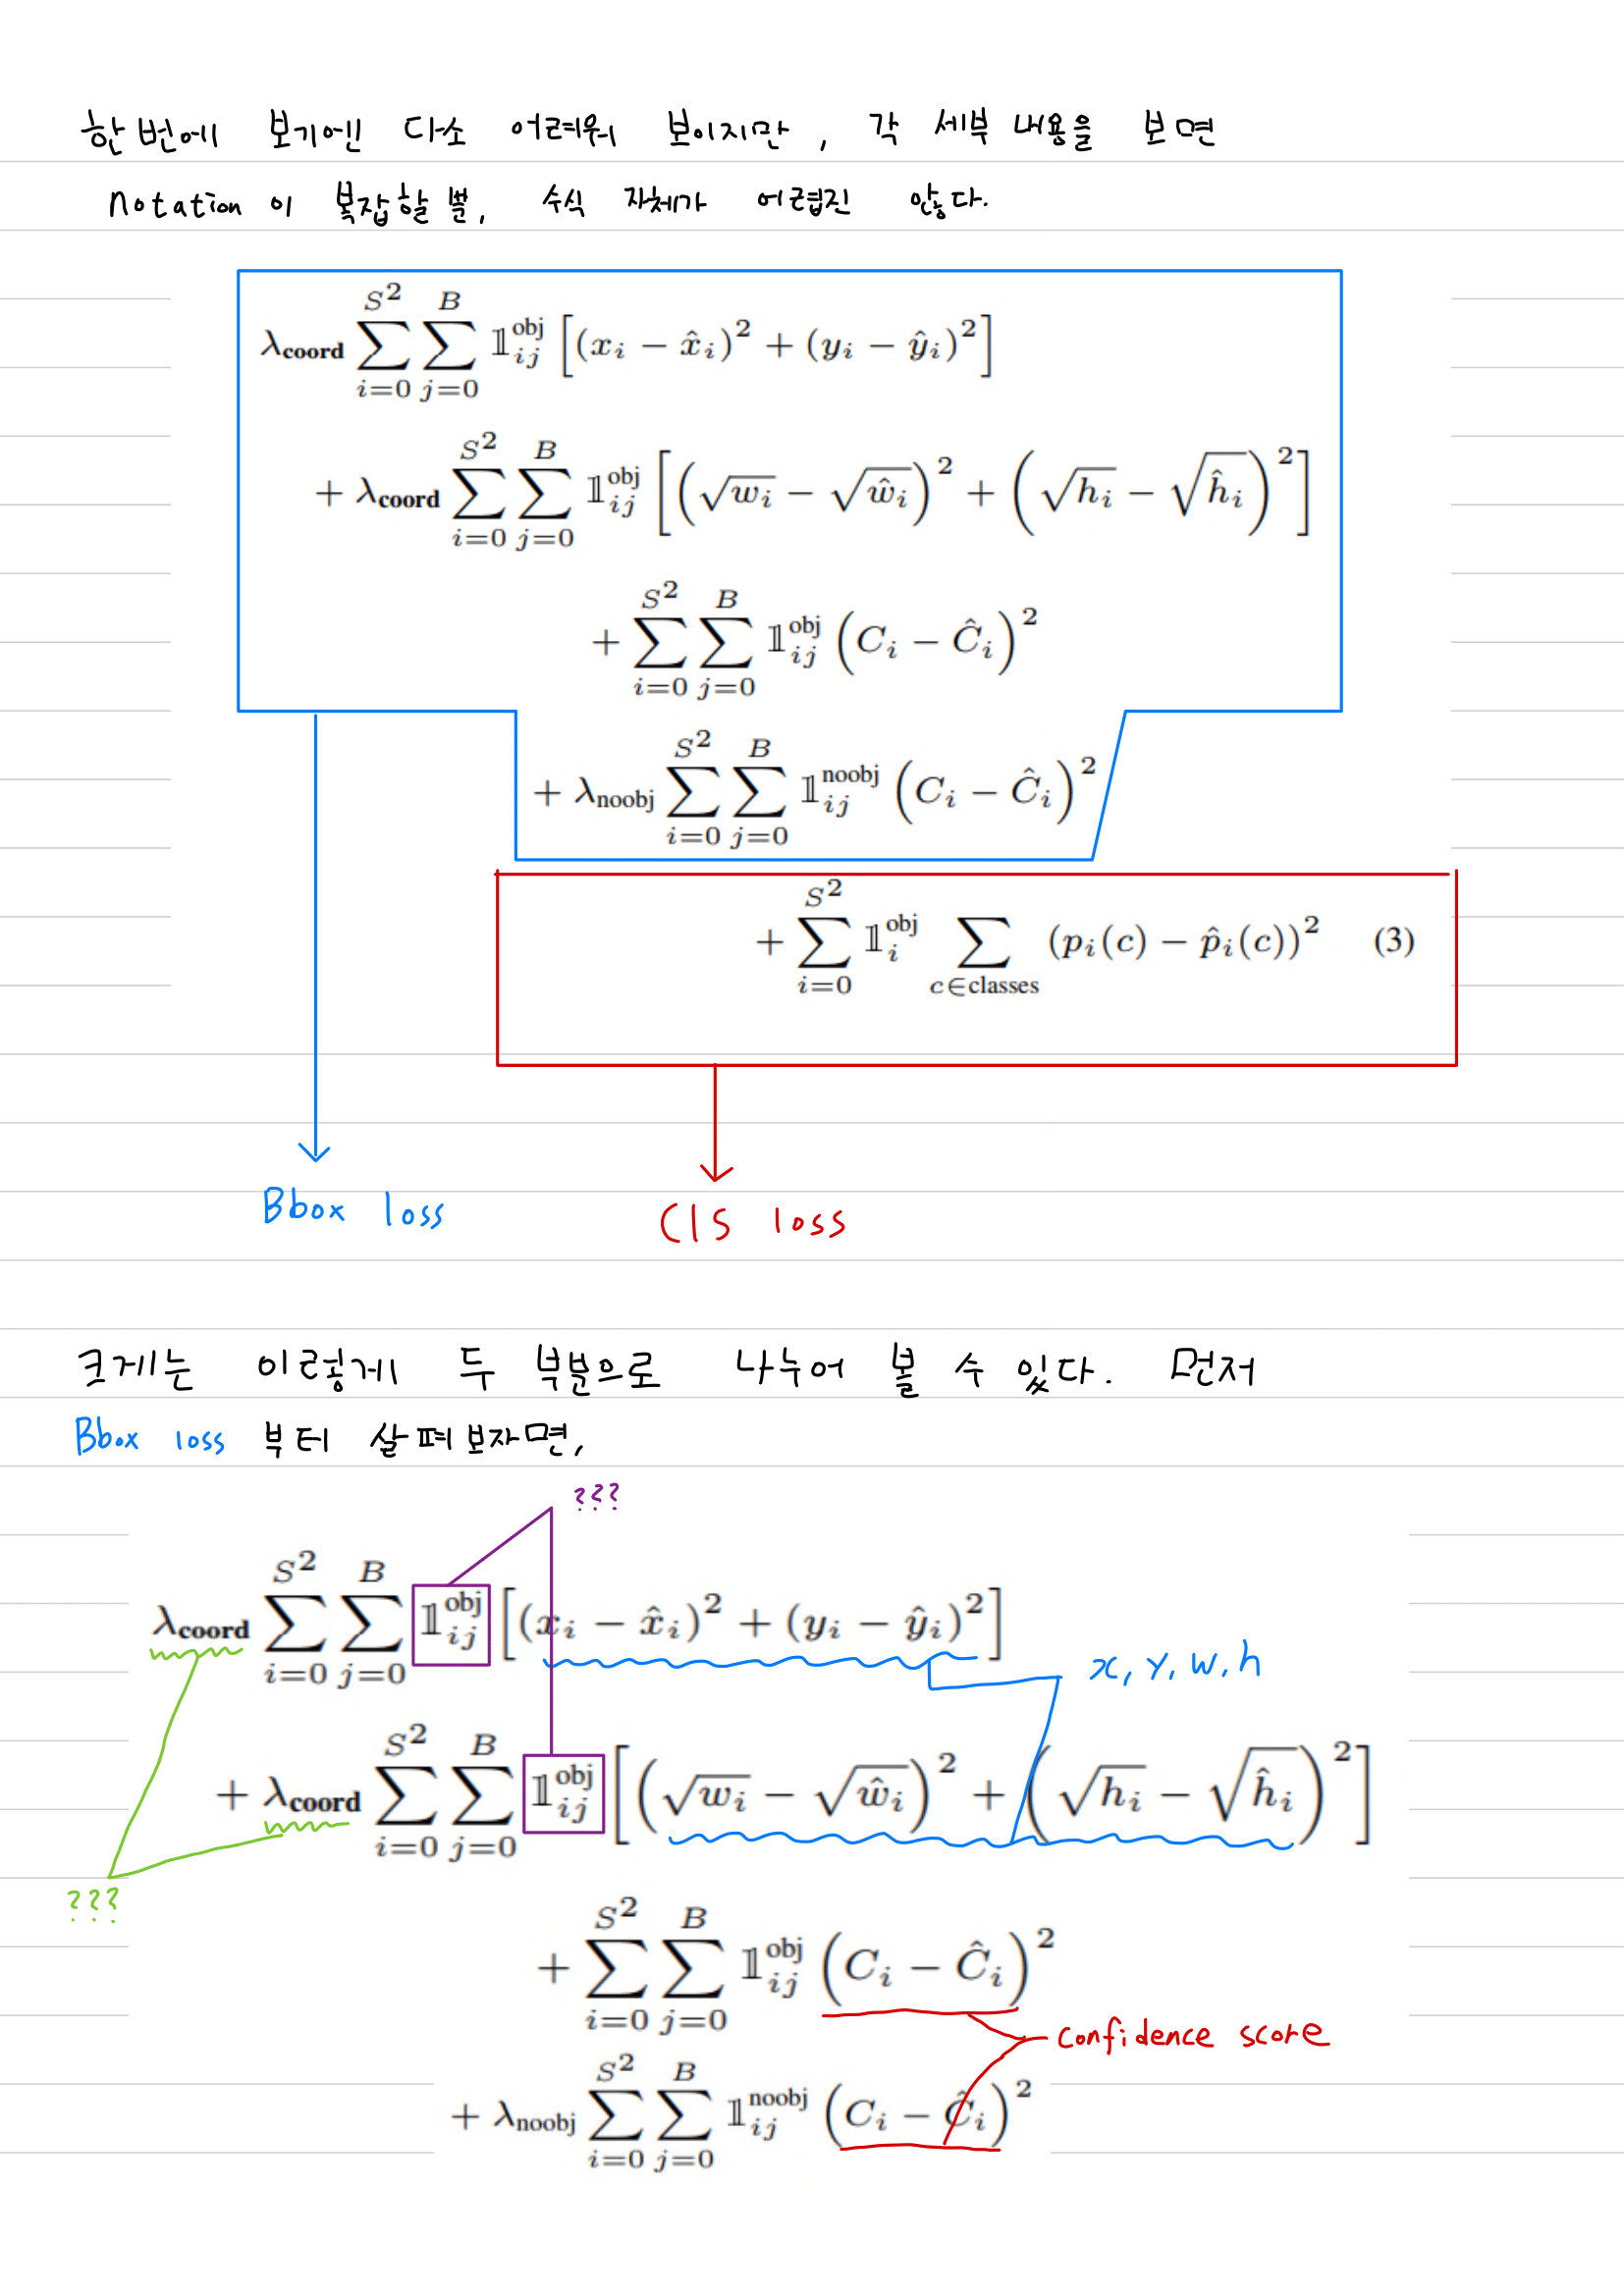 한번에 보기에는 다소 어려워 보이지만, 각 세부 내용을 보면
Notation이 복잡할 뿐, 수식 자체가 어렵진 않다.
λcoord ∑_{i=0}^{S^2} ∑_{j=0}^{B} 𝟙_{ij}^{obj} [(x_i − x̂_i)^2 + (y_i − ŷ_i)^2]
+ λcoord ∑_{i=0}^{S^2} ∑_{j=0}^{B} 𝟙_{ij}^{obj} [(√w_i − √ŵ_i)^2 + (√h_i − √ĥ_i)^2]
+ ∑_{i=0}^{S^2} ∑_{j=0}^{B} 𝟙_{ij}^{obj} (C_i − Ĉ_i)^2
+ λnoobj ∑_{i=0}^{S^2} ∑_{j=0}^{B} 𝟙_{ij}^{noobj} (C_i − Ĉ_i)^2
+ ∑_{i=0}^{S^2} 𝟙_i^{obj} ∑_{c∈classes} (p_i(c) − p̂_i(c))^2 (3)
Bbox loss
Cls loss
크게는 이렇게 두 부분으로 나누어 볼 수 있다. 먼저
Bbox loss 부터 살펴보자면,
???
λcoord ∑_{i=0}^{S^2} ∑_{j=0}^{B} 𝟙_{ij}^{obj} [(x_i − x̂_i)^2 + (y_i − ŷ_i)^2]
x, y, w, h
+ λcoord ∑_{i=0}^{S^2} ∑_{j=0}^{B} 𝟙_{ij}^{obj} [(√w_i − √ŵ_i)^2 + (√h_i − √ĥ_i)^2]
???
+ ∑_{i=0}^{S^2} ∑_{j=0}^{B} 𝟙_{ij}^{obj} (C_i − Ĉ_i)^2
confidence score
+ λnoobj ∑_{i=0}^{S^2} ∑_{j=0}^{B} 𝟙_{ij}^{noobj} (C_i − Ĉ_i)^2